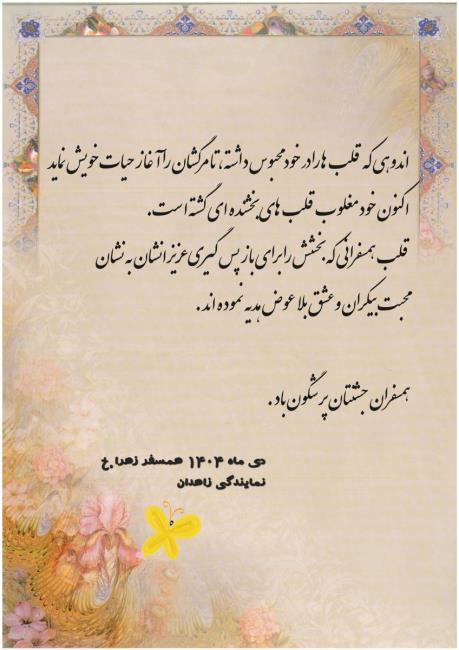 اندوهی که قلب ها را در خود محبوس داشته، تا مرگشان را آغاز حیات خویش نماید
اکنون خود مغلوب قلب های بخشنده ای گشته است.
قلب همسفرانی که بخشش را برای باز پس گیری عزیزانشان به نشان
محبت بیکران و عشق بلاعوض هدیه نموده اند.
همسفران جشنتان پر شگون باد.
دی ماه ۱۴۰۴ همسفر زهرا.خ
نمایندگی زاهدان